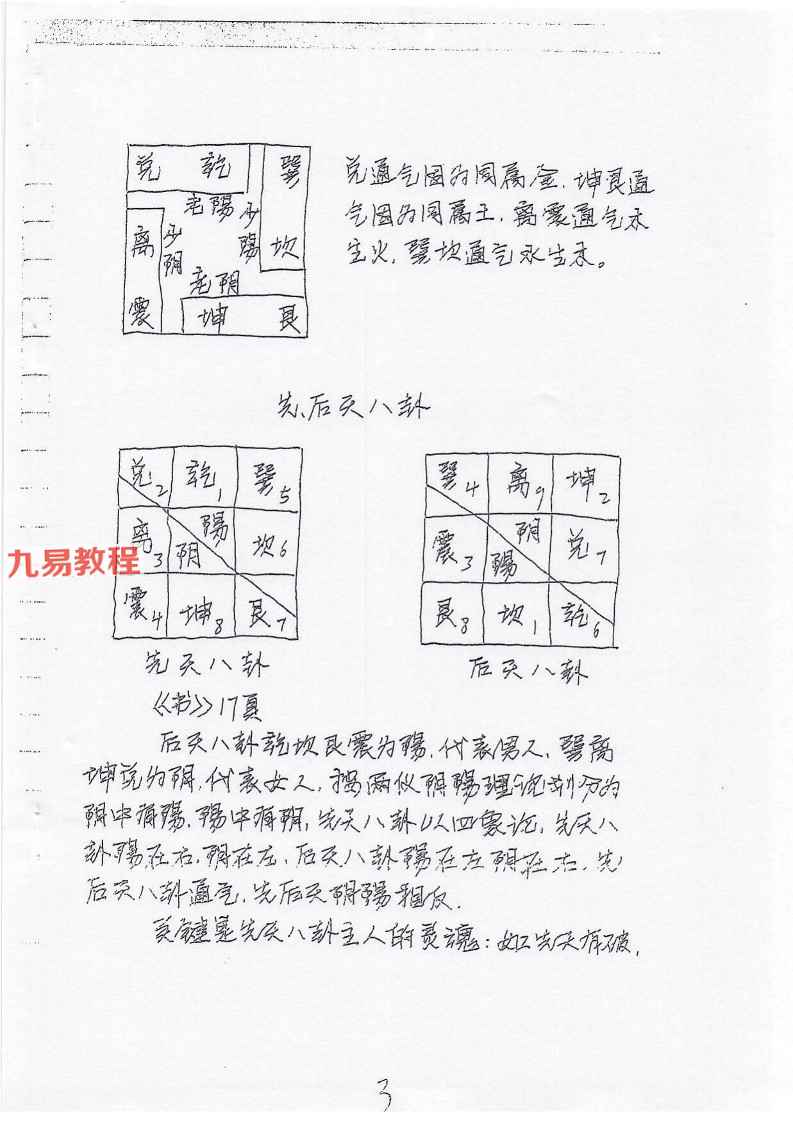 兑 乾 巽
老陽
离 少阴 少陽 坎
老阴
震 坤 艮
兑通气因为同属金，坤艮通
气因为同属土，离震通气木
生火，巽坎通气水生木。
先、后天八卦
兑2 乾1 巽5
离3 阴 陽 坎6
震4 坤8 艮7
巽4 离9 坤2
震3 陽 阴 兑7
艮8 坎1 乾6
九易教程
先天八卦
后天八卦
《书》17頁
后天八卦乾坎艮震为陽，代表男人，巽离
坤兑为阴，代表女人，按两仪阴陽理论划分的
阴中有陽，陽中有阴，先天八卦以四象论，先天八
卦陽在右，阴在左，后天八卦陽在左阴在右，先
后天八卦通气，先后天阴陽相反.
关键是先天八卦主人的灵魂：如先天有破，
3